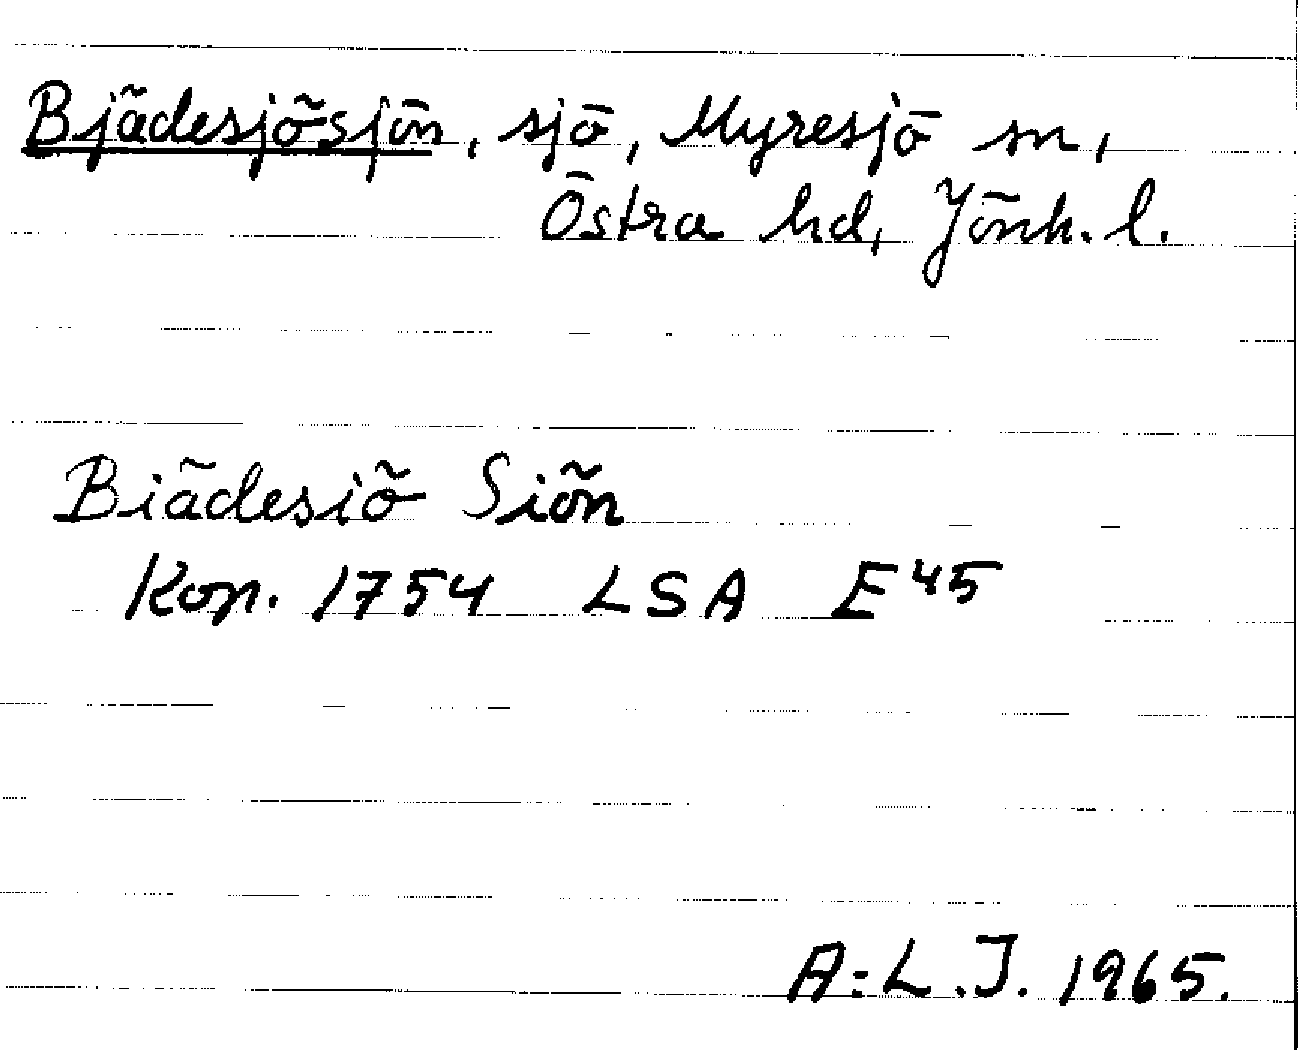 Bjädesjösjön, sjö, Myresjö sn,
Östra hd, Jönk. l.
Biädesiö Siön
Kop. 1754 LSA E45
A:L.J. 1965.